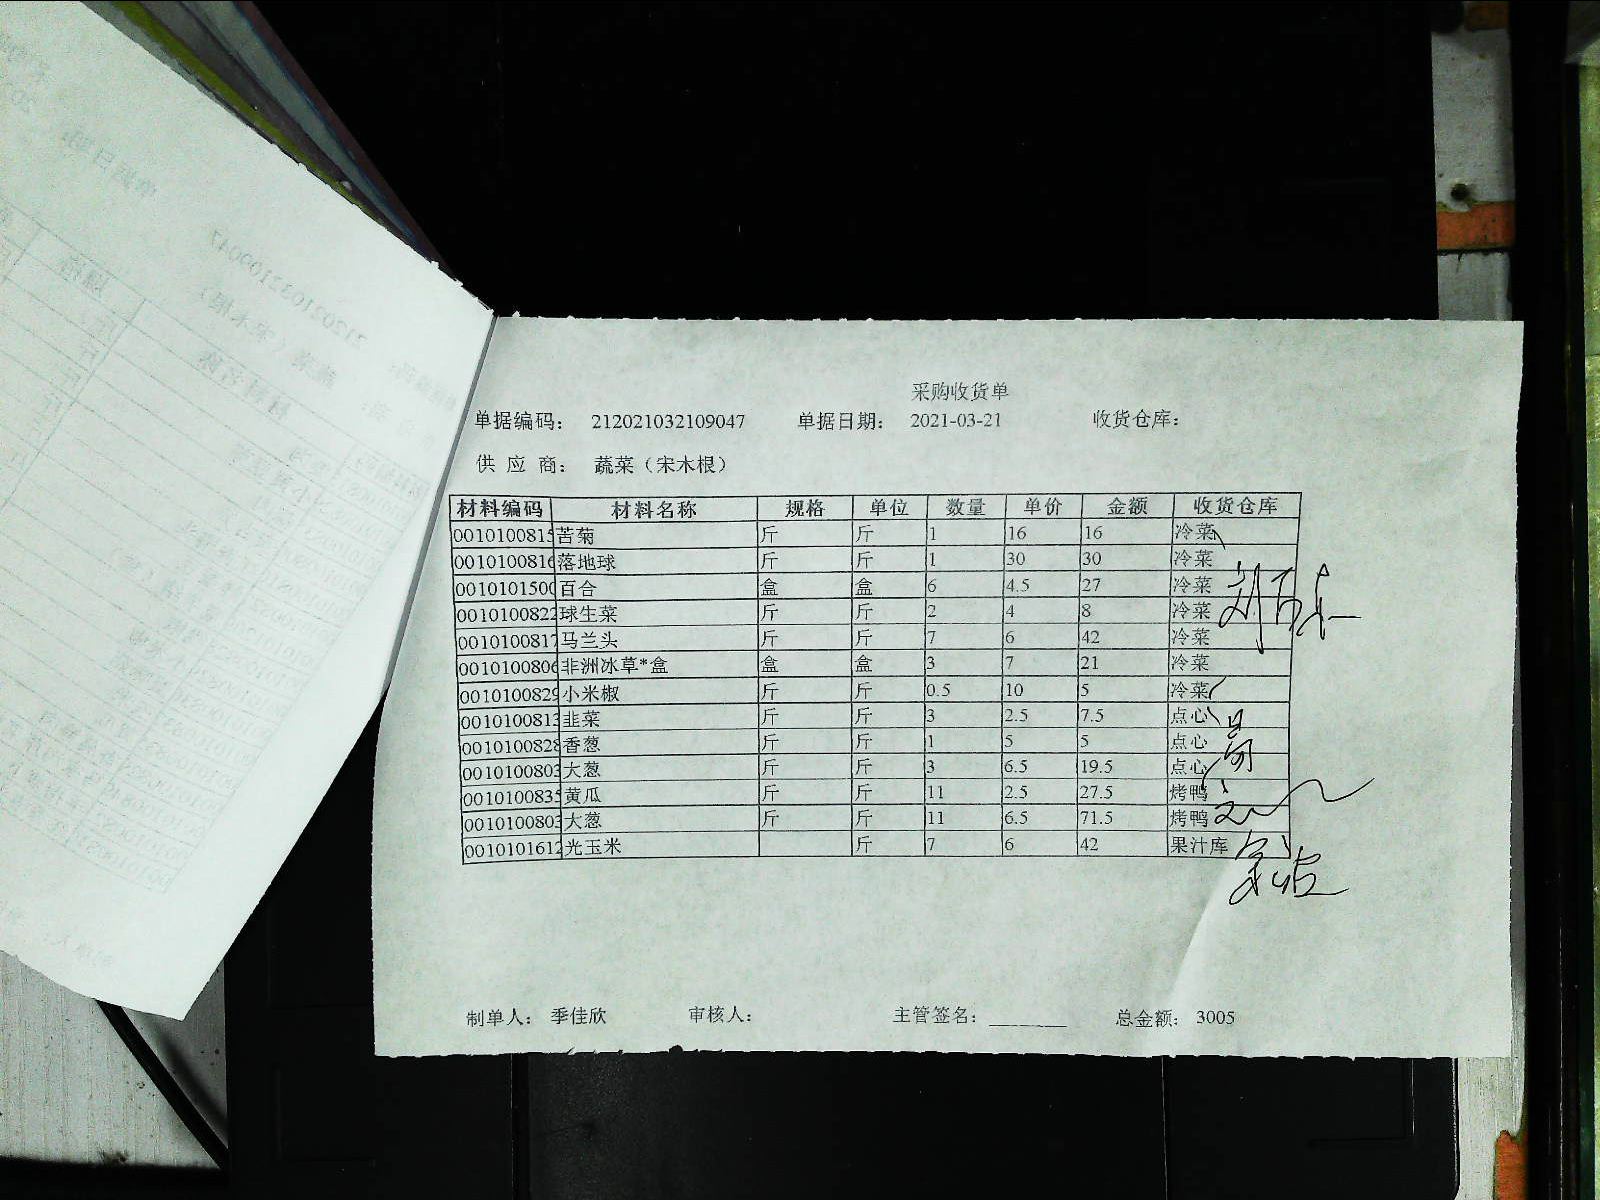 采购收货单
单据编码： 212021032109047 单据日期： 2021-03-21 收货仓库：
供 应 商： 蔬菜（宋木根）
材料编码 材料名称 规格 单位 数量 单价 金额 收货仓库
0010100815 苦菊 斤 斤 1 16 16 冷菜
0010100816 落地球 斤 斤 1 30 30 冷菜
0010101500 百合 盒 盒 6 4.5 27 冷菜
0010100822 球生菜 斤 斤 2 4 8 冷菜
0010100817 马兰头 斤 斤 7 6 42 冷菜
0010100806 非洲冰草*盒 盒 盒 3 7 21 冷菜
0010100829 小米椒 斤 斤 0.5 10 5 冷菜
0010100813 韭菜 斤 斤 3 2.5 7.5 点心
0010100828 香葱 斤 斤 1 5 5 点心
0010100803 大葱 斤 斤 3 6.5 19.5 点心
0010100835 黄瓜 斤 斤 11 2.5 27.5 烤鸭
0010100803 大葱 斤 斤 11 6.5 71.5 烤鸭
0010101612 光玉米 斤 7 6 42 果汁库
制单人： 季佳欣 审核人： 主管签名： 总金额： 3005